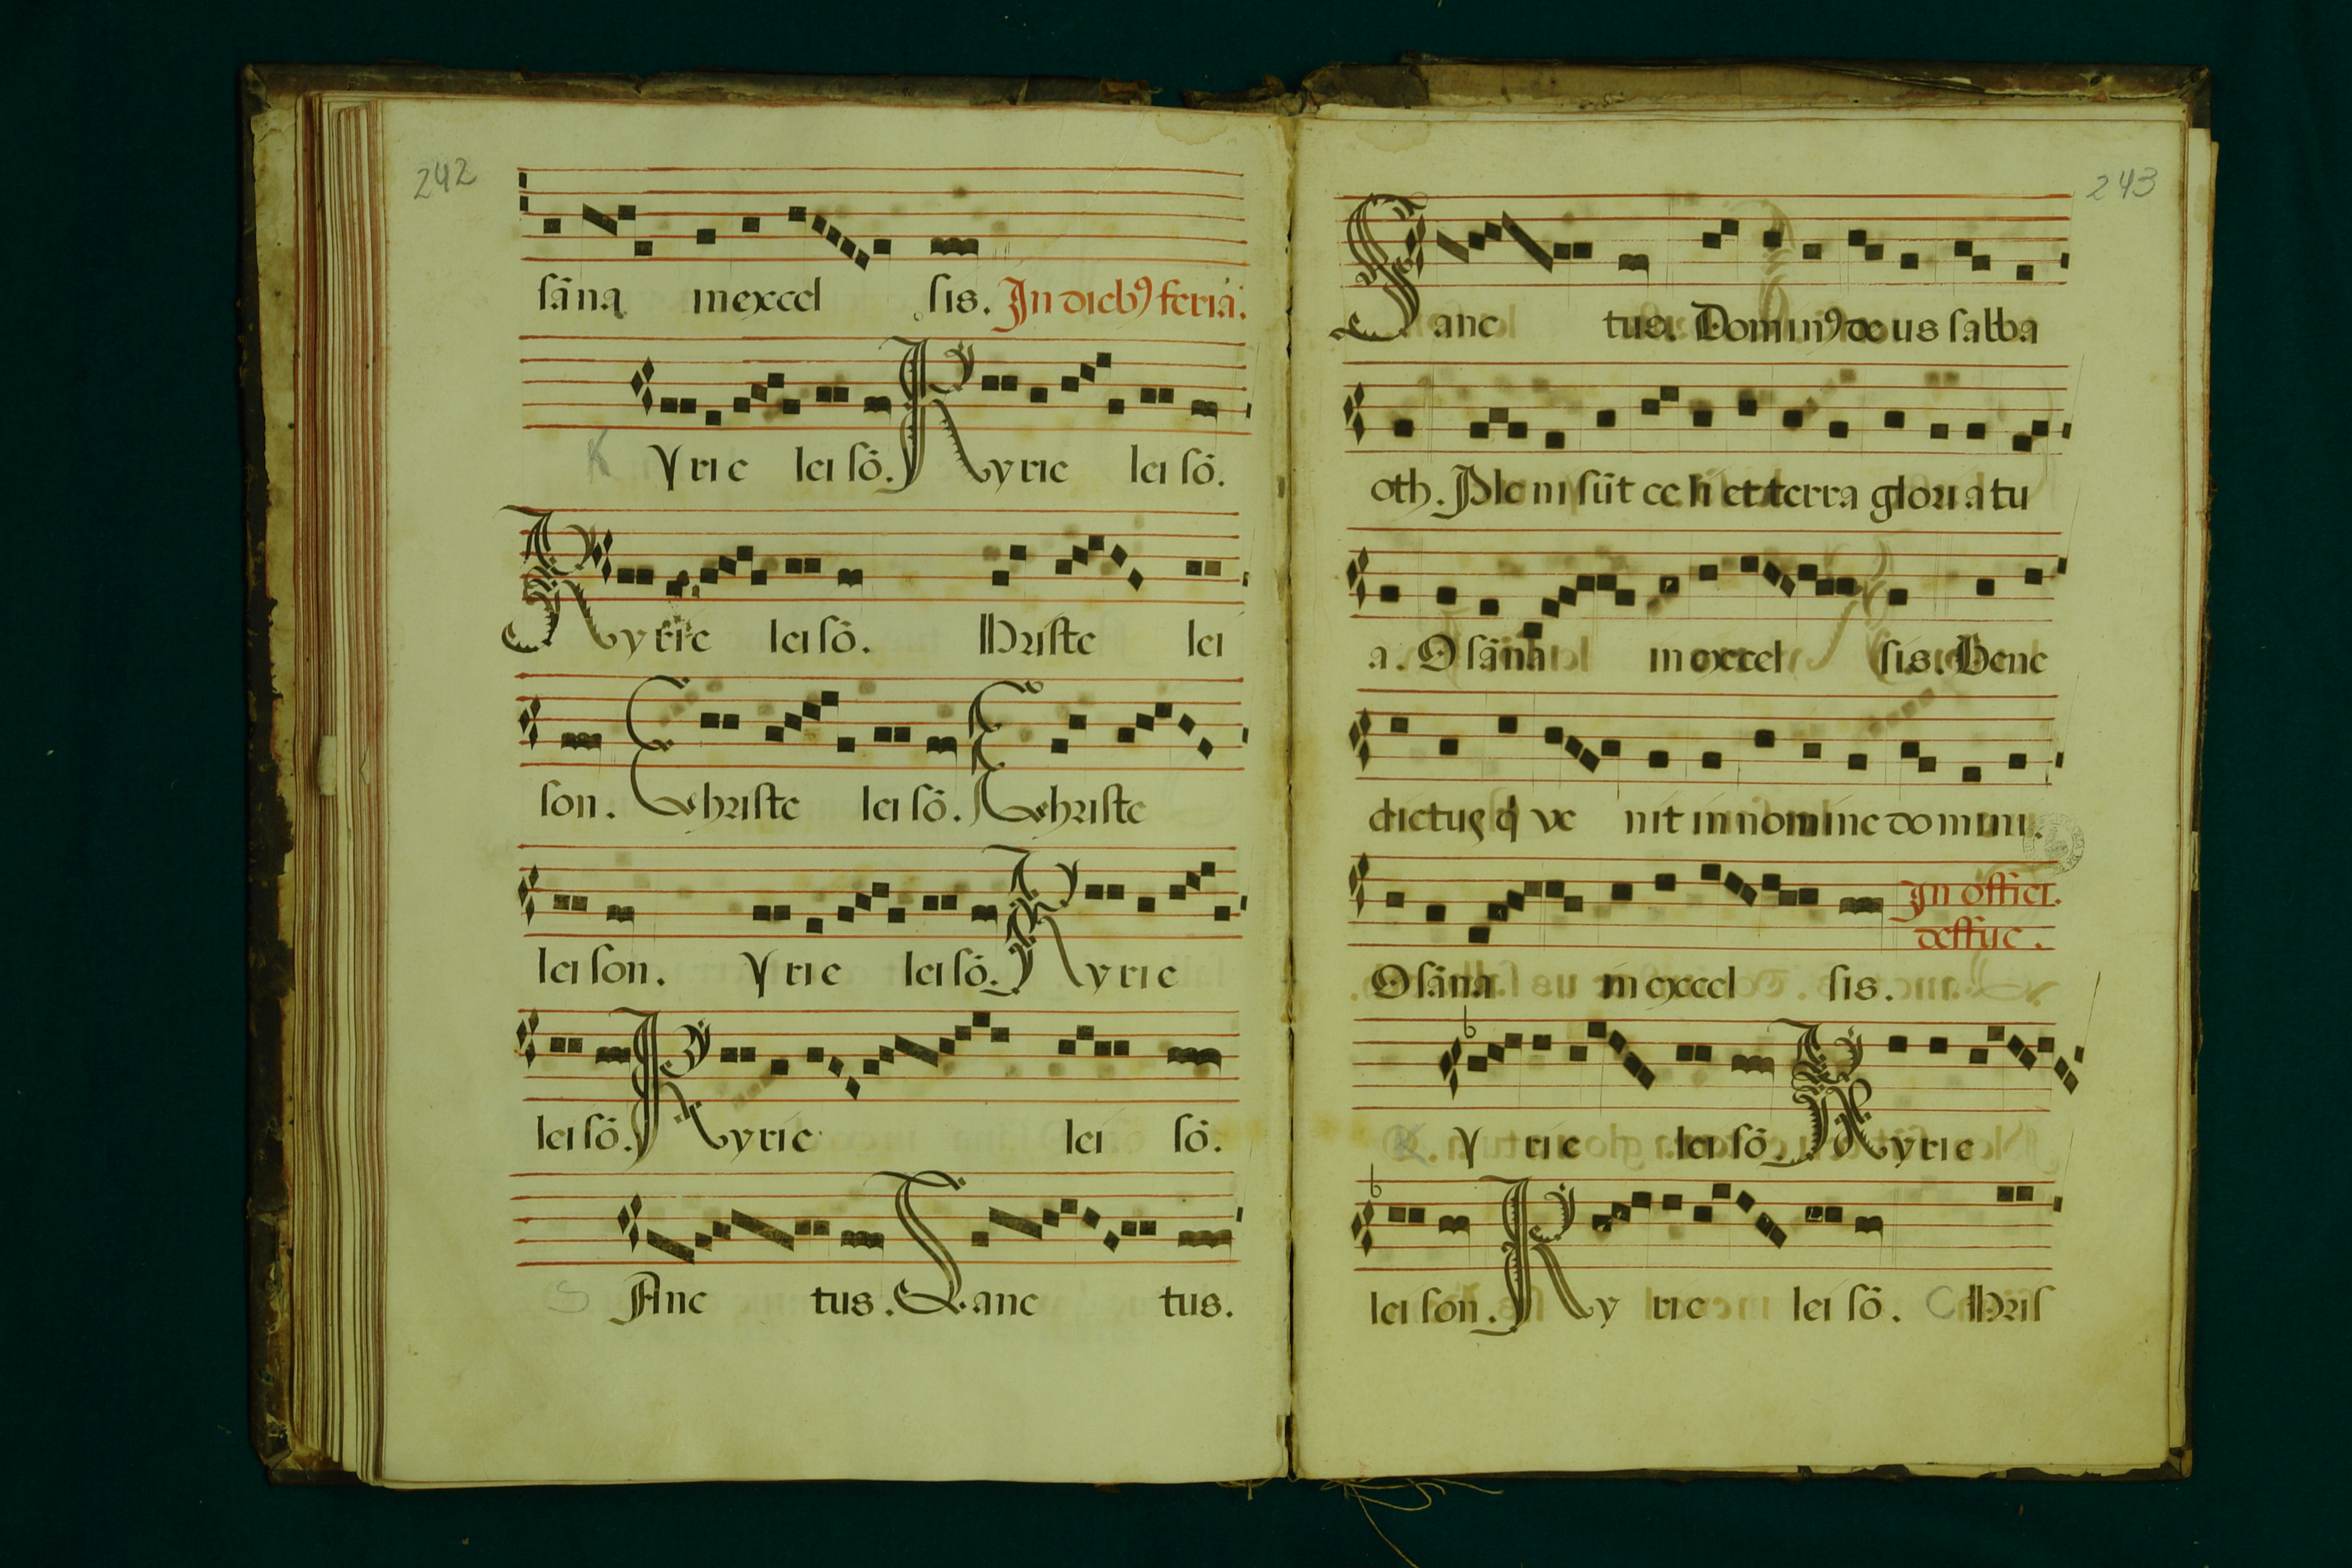 242
sāna in excel sis. In dieb9 feria.
K Yrie lei sō. Kyrie lei sō.
Kyrie lei sō. hriste lei
son. Christe lei sō. Christe
lei son. Yrie lei sō. Kyrie
lei sō. Kyrie lei sō.
S Anc tus. Sanc tus.
243
Sanc tus. Domin9 de us sabba
oth. Ple ni sūt ce li et terra gloria tu
a. O sāna in excel sis. Bene
dictus q̇ ve nit in nomine domini.
O sāna in excel sis. In offici.
deffūc.
K Y rie lei sō. Kyrie
lei son. Ky rie lei sō. C hris